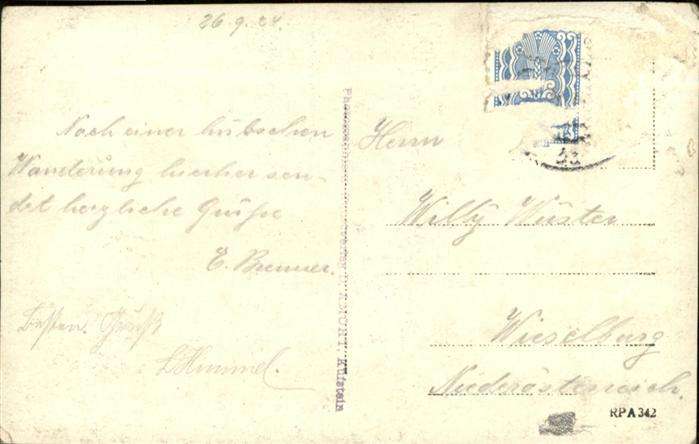 26.9.24.
Nach einer hübschen
Wanderung hierher sen-
det herzliche Grüße
E. Brenner.
Besten Gruß
L. Himmel.
Herrn
Willy Wüster
Wieselburg
Niederösterreich.
Kufstein
RPA 342